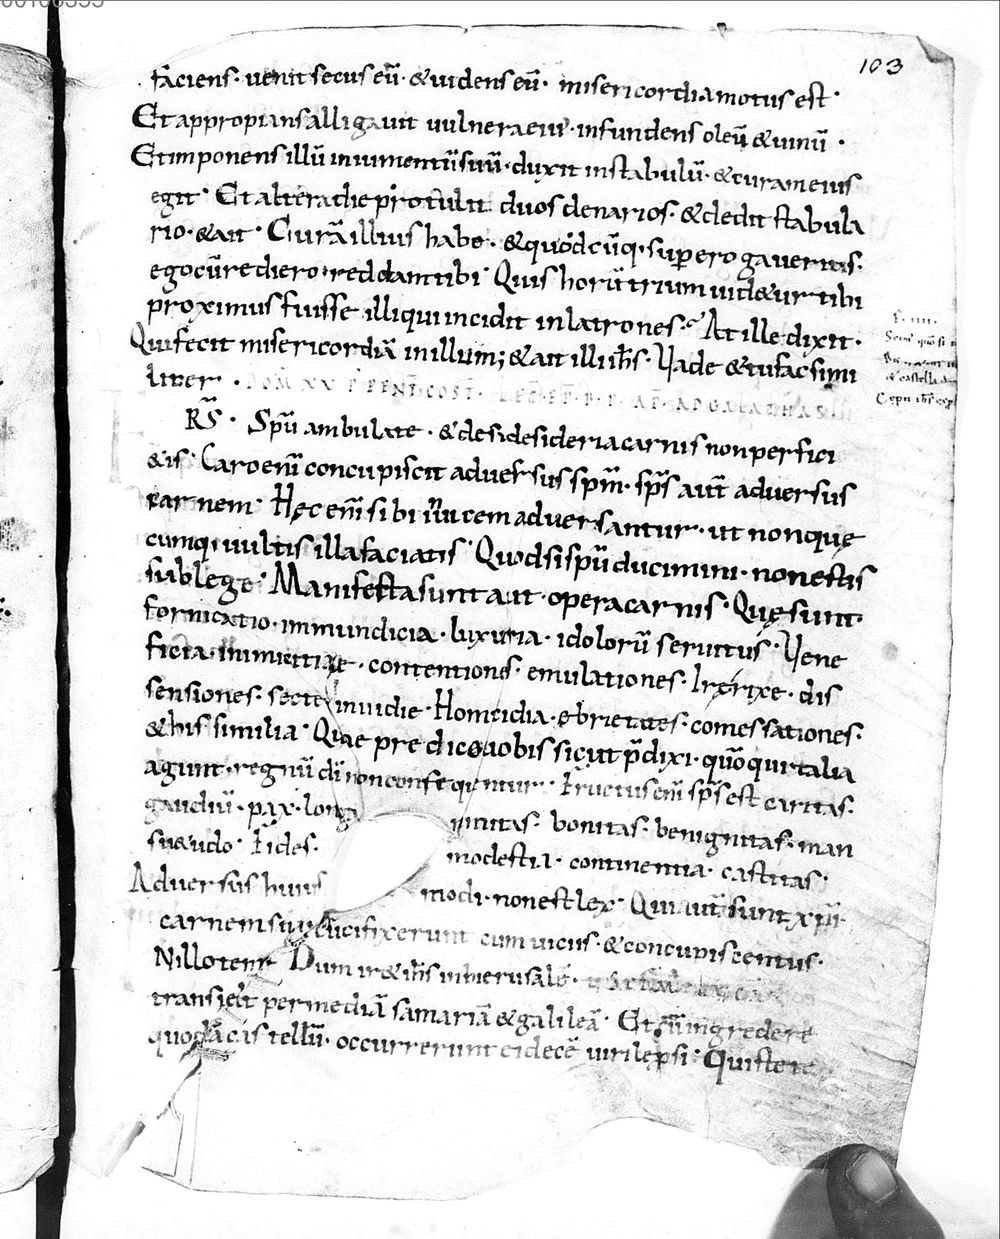 103
faciens· uenit secus eū· &uidens eū· misericordia motus est·
Et appropians alligauit uulnera eius· infundens oleū &uinū·
Et imponens illū iniumentū suū· duxit instabulū· &curam eius
egit· Et altera die protulit duos denarios· &dedit stabula
rio· &ait· Curā illius habe· &quodcūq· supererogaueris·
ego cū rediero· reddam tibi· Quis horū trium uid&ur tibi
proximus fuisse illi qui incidit inlatrones· At ille dixit·
Qui fecit misericordiā inillum; &ait illi ihs· Uade &tu fac simi
liter· DOM XX P PENTCOST· AD GALATHAS
RS· Spū ambulate· &desideria carnis nonperfici
&is· Caro enī concupiscit aduersus spm· sps aut aduersus
carnem· Hęc enī sibi inuicem aduersantur· ut nonquę
cumq· uultis illa faciatis· Quod si spū ducimini· non estis
sub lege· Manifesta sunt aut· opera carnis· Quę sunt·
fornicatio· immundicia· luxuria· idolorū seruitus· Uene
ficia· inimicitiae· contentiones· emulationes· Irę rixe· dis
sensiones· secte inuidie· Homicidia· ebrietates· comessationes·
&his similia· Quae predico uobis sicut p̄dixi· quō qui talia
agunt· regnū dī non consequentur· Fructus enī sps est caritas·
gaudiū· pax· long nimitas· bonitas· benignitas· man
su&udo· Fides· modestia· continentia· castitas·
Aduersus huius modi· non est lex· Qui aut sunt xpī·
carnem suā crucifixerunt cum uiciis· &concupiscentiis·
N illo tempr Dum ir& ihs inhierusalē·
transiebt per mediā samariā &galileā· Et cū ingredere
quoddā castellū· occurrerunt ei decē uiri lepsi· Qui stete